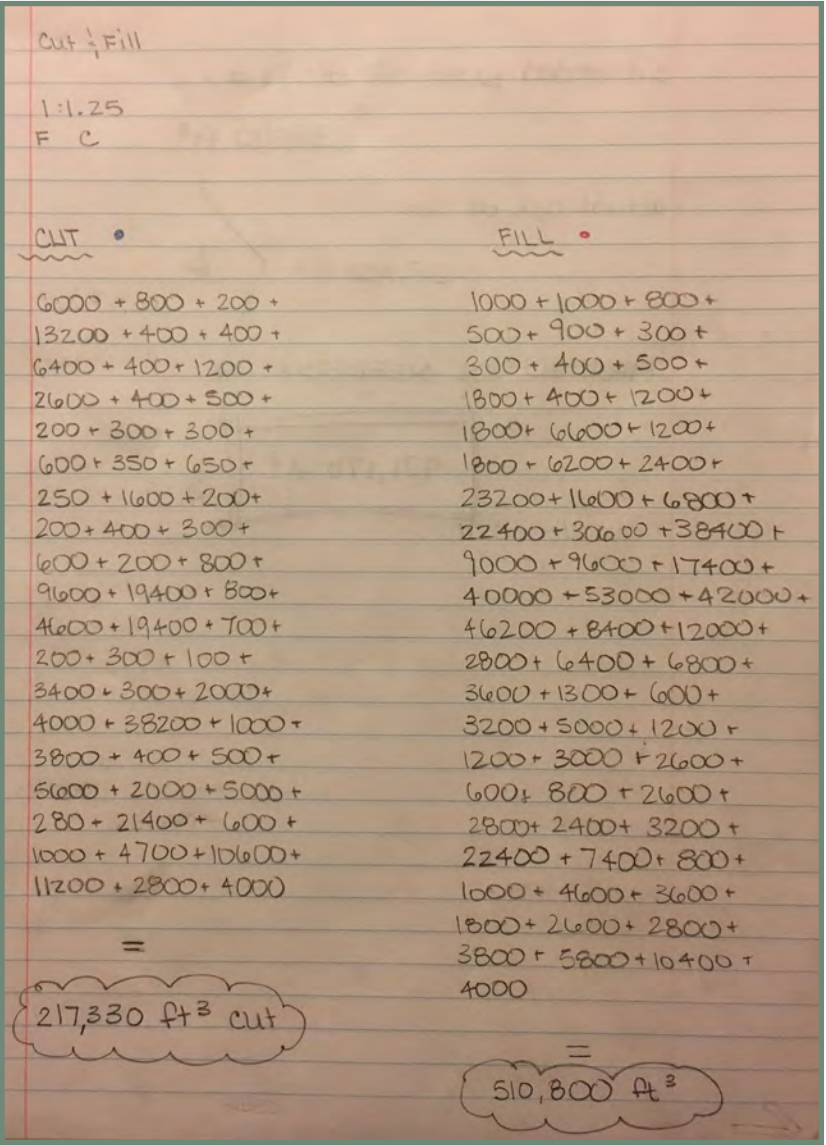 Cut & Fill
1:1.25
F C
CUT
6000 + 800 + 200 +
13200 + 400 + 400 +
6400 + 400 + 1200 +
2600 + 400 + 500 +
200 + 300 + 300 +
600 + 350 + 650 +
250 + 1600 + 200 +
200 + 400 + 300 +
600 + 200 + 800 +
9600 + 19400 + 800 +
4600 + 19400 + 700 +
200 + 300 + 100 +
3400 + 300 + 2000 +
4000 + 38200 + 1000 +
3800 + 400 + 500 +
5600 + 2000 + 5000 +
280 + 21400 + 600 +
1000 + 4700 + 10600 +
11200 + 2800 + 4000
=
217,330 ft³ cut
FILL
1000 + 1000 + 800 +
500 + 900 + 300 +
300 + 400 + 500 +
1800 + 400 + 1200 +
1800 + 6600 + 1200 +
1800 + 6200 + 2400 +
23200 + 1600 + 6800 +
22400 + 30600 + 38400 +
9000 + 9600 + 17400 +
40000 + 53000 + 42000 +
46200 + 8400 + 12000 +
2800 + 6400 + 6800 +
3600 + 1300 + 600 +
3200 + 5000 + 1200 +
1200 + 3000 + 2600 +
600 + 800 + 2600 +
2800 + 2400 + 3200 +
22400 + 7400 + 800 +
1000 + 4600 + 3600 +
1800 + 2600 + 2800 +
3800 + 5800 + 10400 +
4000
=
510,800 ft³